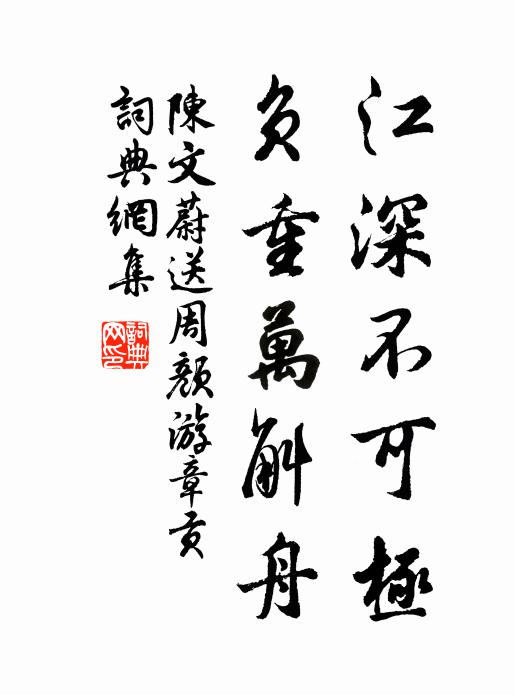 江深不可極
負重萬斛舟
陳文蔚送周顏游章貢
詞典網集
詞典网印